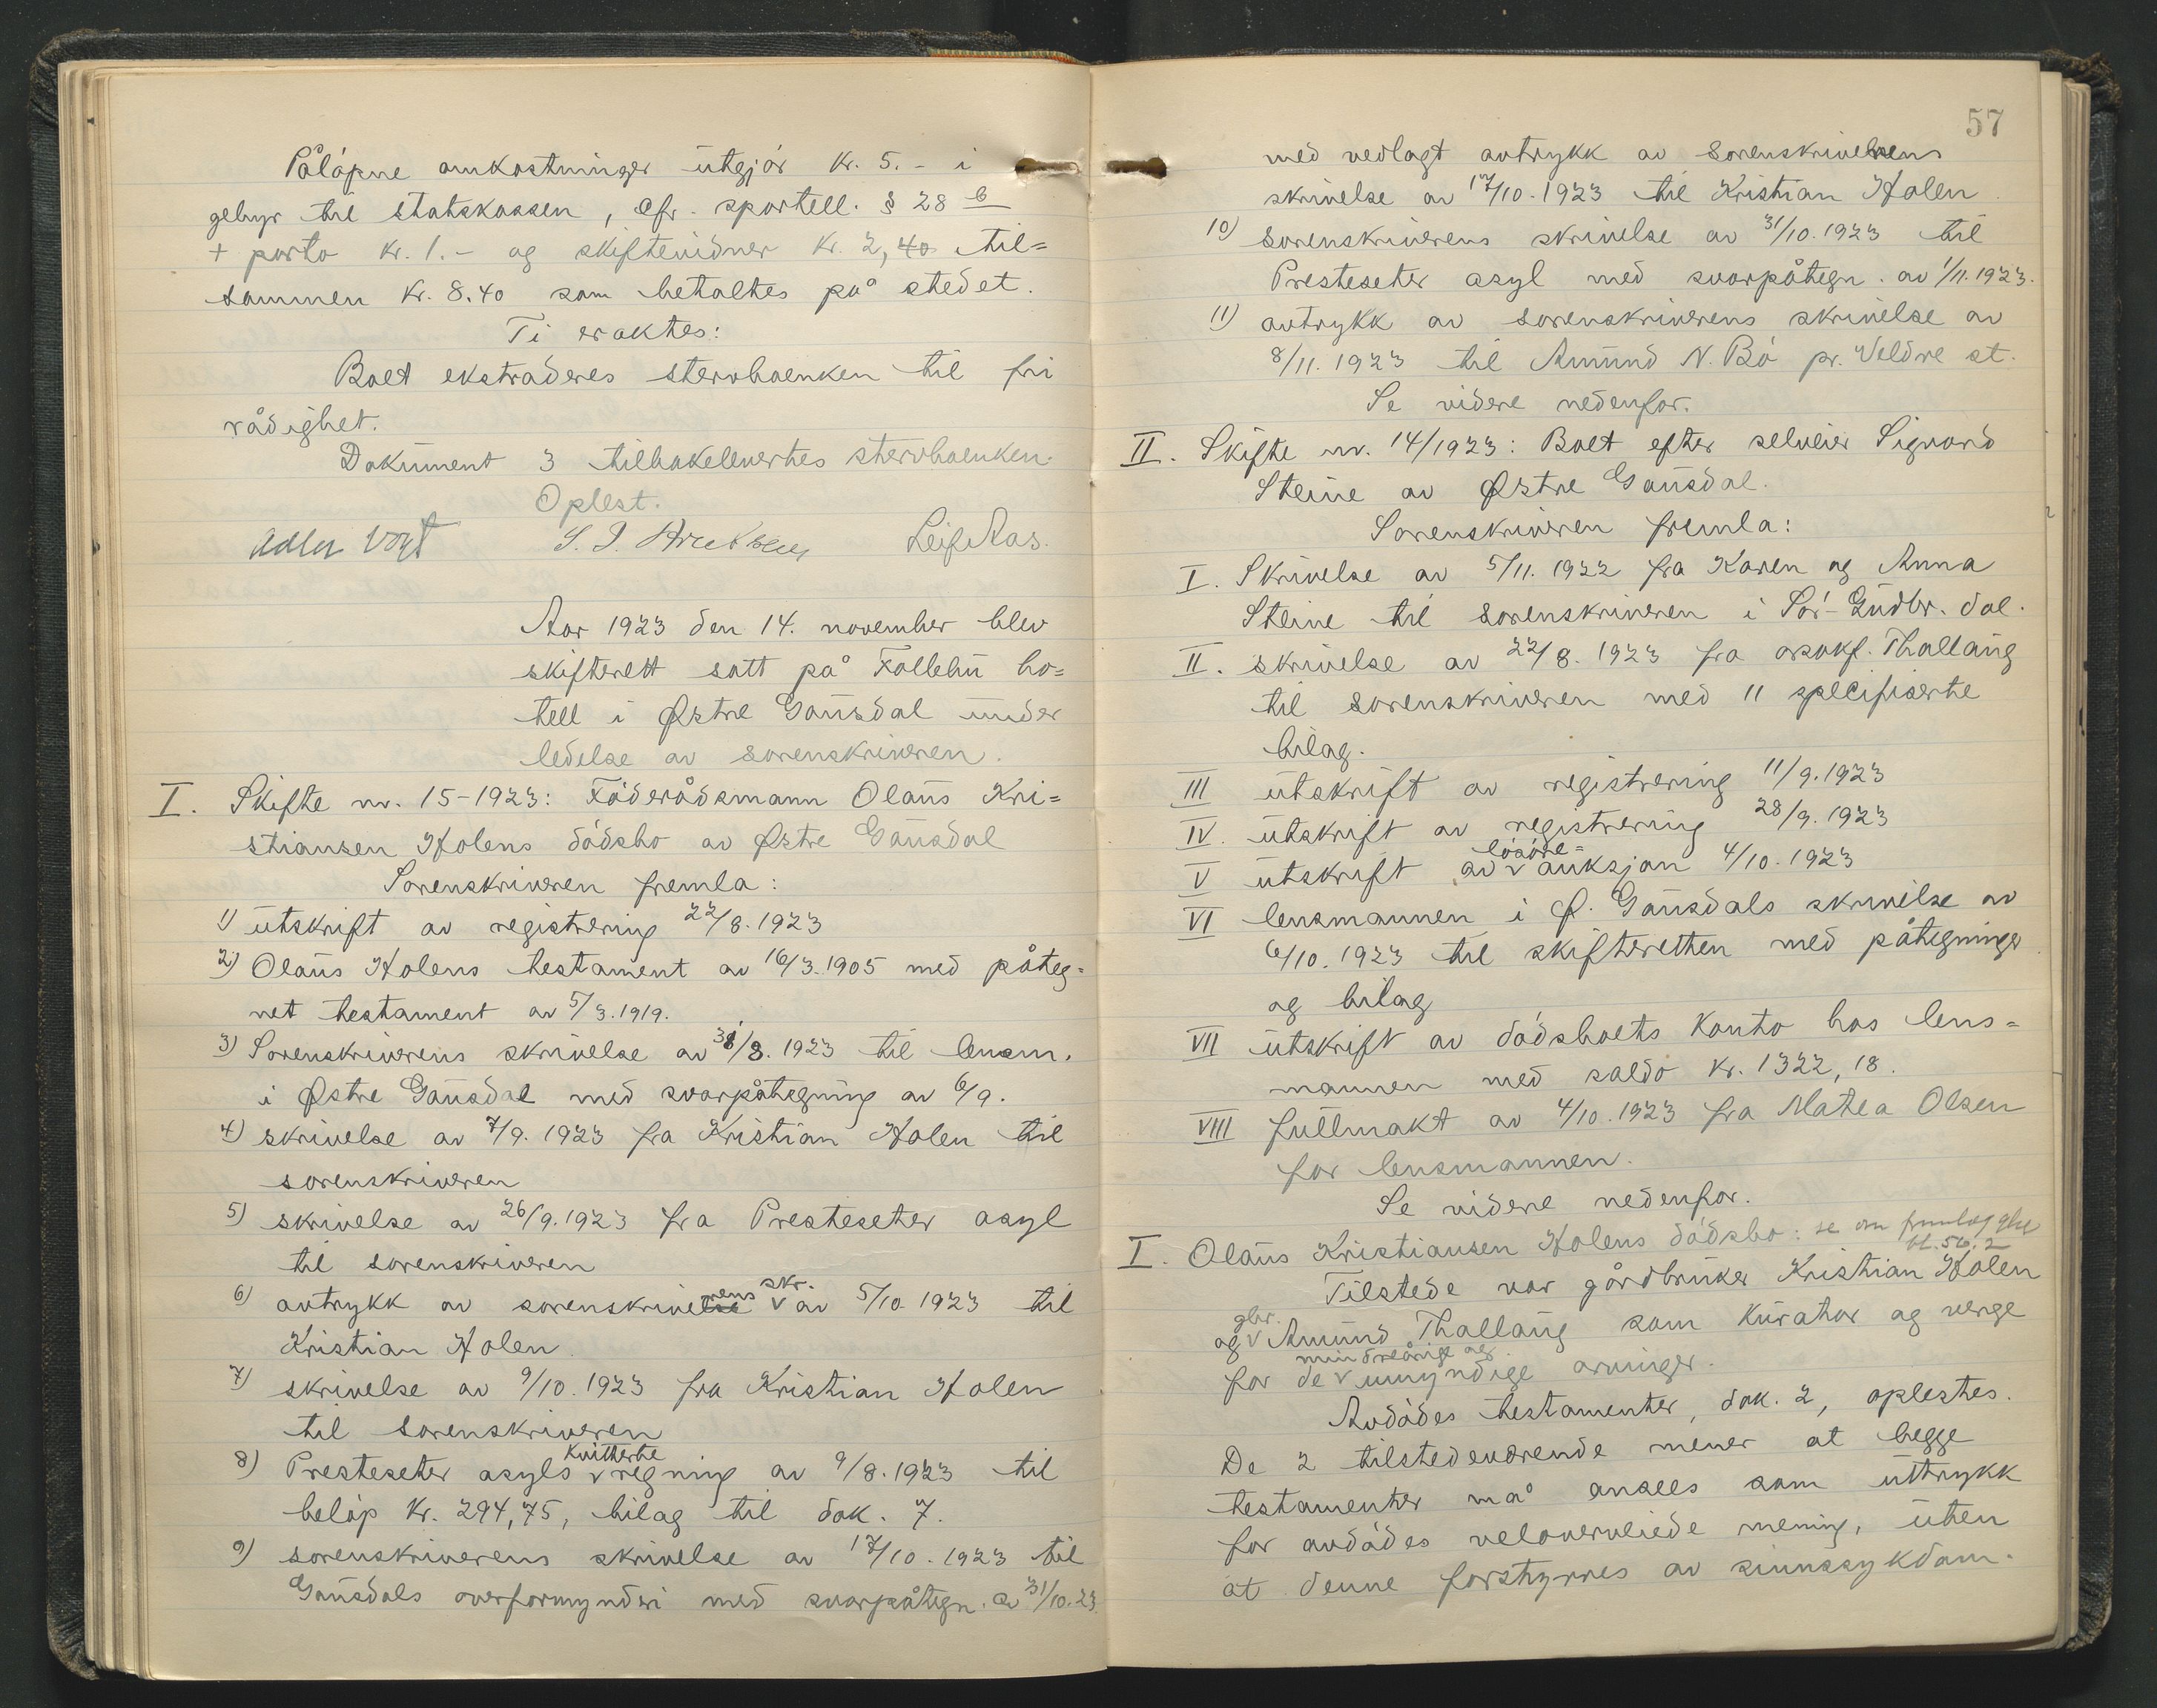 Påløpne omkostninger utgjør kr. 5.- i
gebyr til statskassen, cfr. sportell. § 28 b
+ porto kr. 1.- og skiftevidner kr. 2,40 til=
sammen kr. 8.40 som betaltes på stedet.
Ti eraktes:
Boet ekstraderes stervboenken til fri
rådighet.
Dokument 3 tilbakelevertes stervboenken.
Oplest.
Adler Vogt Leif Aas.
Aar 1923 den 14. november blev
skifterett satt på Follebu ho=
tell i Østre Gausdal under
ledelse av sorenskriveren.
I. Skifte nr. 15-1923: Føderådsmann Olaus Kri=
stiansen Holens dødsbo av Østre Gausdal
Sorenskriveren fremla:
1) utskrift av registrering 22/8. 1923
2) Olaus Holens testament av 16/3. 1905 med påteg=
net testament av 5/3. 1919.
3) Sorenskriverens skrivelse av 31/8. 1923 til lensm.
i Østre Gausdal med svarpåtegning av 6/9.
4) skrivelse av 7/9. 1923 fra Kristian Holen til
sorenskriveren
5) skrivelse av 26/9. 1923 fra Presteseter asyl
til sorenskriveren
6) avtrykk av sorenskriverens skr. av 5/10. 1923 til
Kristian Holen.
7) skrivelse av 9/10. 1923 fra Kristian Holen
til sorenskriveren
8) Presteseter asyls kvitterte regning av 9/8. 1923 til
beløp kr. 294,75, bilag til dok. 7.
9) sorenskriverens skrivelse av 17/10. 1923 til
Gausdals overformynderi med svarpåtegn. av 31/10. 23.
57
med vedlagt avtrykk av sorenskriverens
skrivelse av 17/10. 1923 til Kristian Holen
10) sorenskriverens skrivelse av 31/10. 1923 til
Presteseter asyl med svarpåtegn. av 1/11. 1923.
11) avtrykk av sorenskriverens skrivelse av
8/11. 1923 til Amund N. Bø pr. Veldre st.
Se videre nedenfor.
II. Skifte nr. 14/1923: Boet efter selveier Sigvard
Steine av Østre Gausdal.
Sorenskriveren fremla:
I. Skrivelse av 5/11. 1922 fra Karen og Anna
Steine til sorenskriveren i Sør-Gudbr. dal.
II. skrivelse av 22/8. 1923 fra o.r.sakf. Thallaug
til sorenskriveren med 11 specifiserte
bilag.
III utskrift av registrering 11/9. 1923
IV. utskrift av registrering 28/9. 1923
V utskrift av løsøre= auksjon 4/10. 1923
VI lensmannen i Ø. Gausdals skrivelse av
6/10. 1923 til skifteretten med påtegninger
og bilag
VII utskrift av dødsboets konto hos lens=
mannen med saldo kr. 1322,18.
VIII fullmakt av 4/10. 1923 fra Matea Olsen
for lensmannen.
Se videre nedenfor.
I. Olaus Kristiansen Holens dødsbo: se om fremlaggelse
bl. 56, 2
Tilstede var gårdbruker Kristian Holen
og gbr. Amund Thallaug som kurator og verge
for de mindreårige og umyndige arvinger.
Avdødes testamenter, dok. 2, oplestes.
De 2 tilstedeværende mener at begge
testamenter må ansees som uttrykk
for avdødes veloverveiede mening, uten
at denne forstyrres av sinnssykdom.